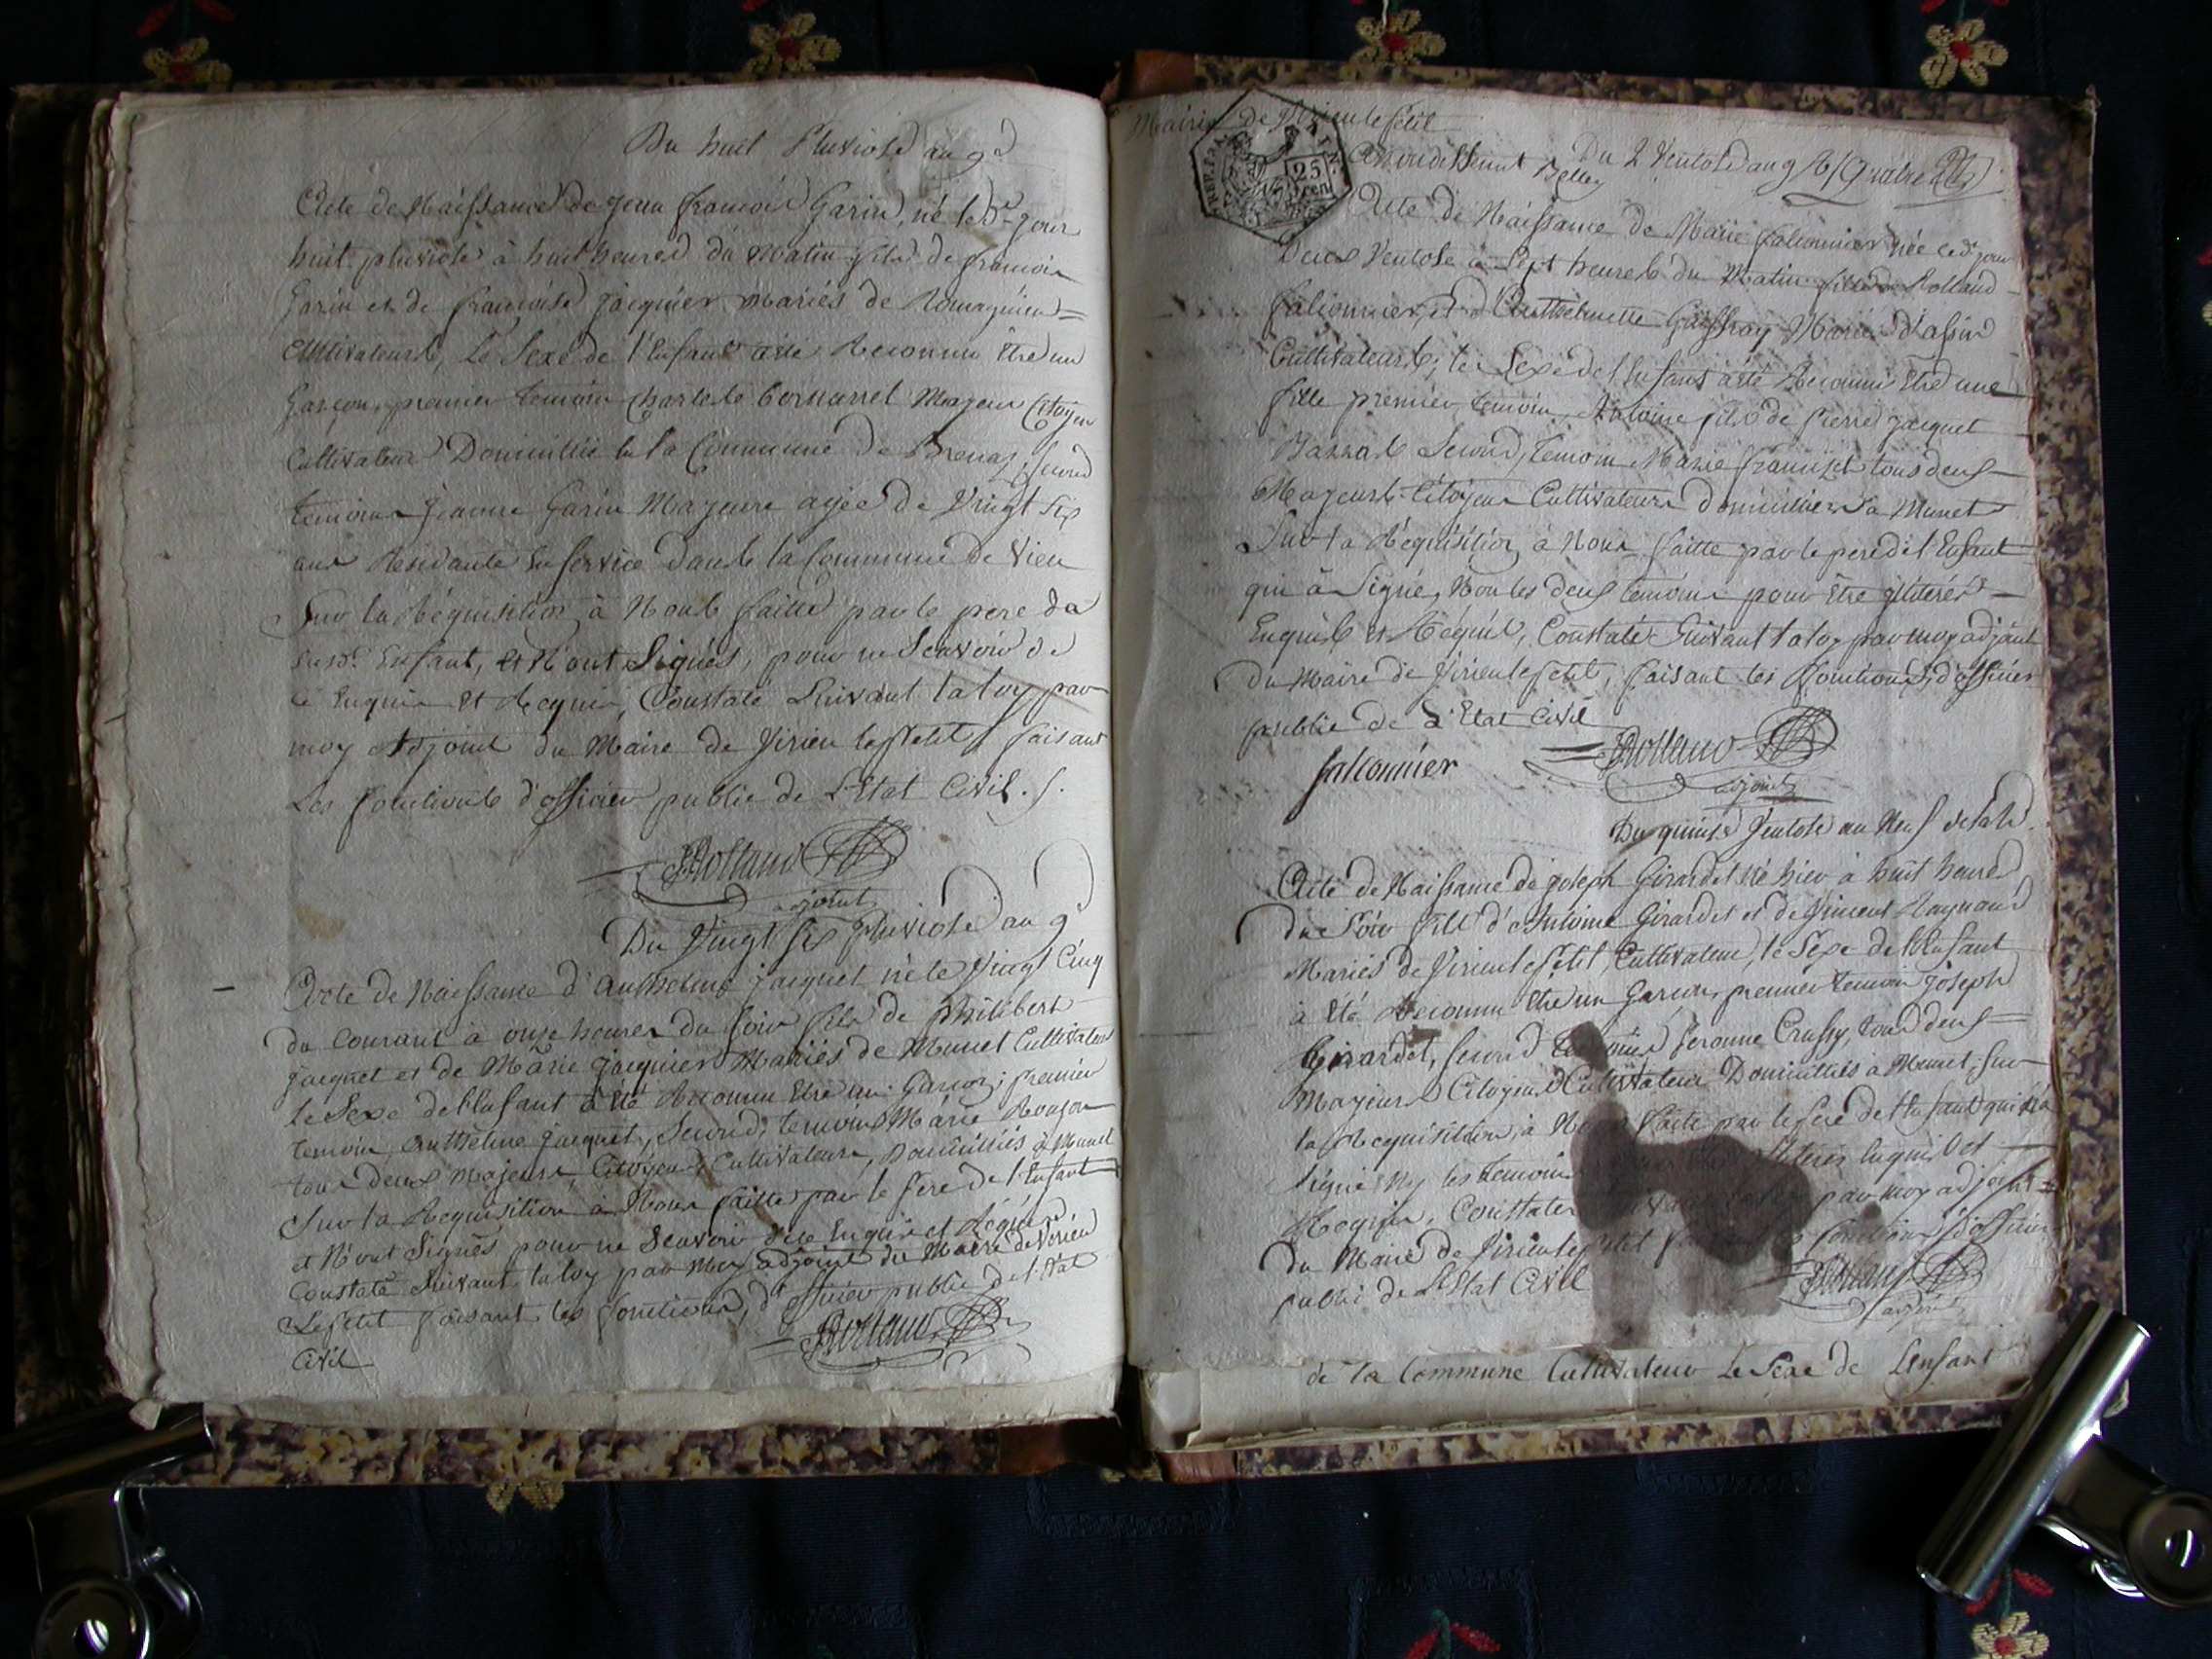 Du huit Pluviose an 9e
Acte de Naissance de Jean François Garin, né le dr jour
huit pluviose à huit heures du Matin fils de François
Garin et de Françoise Jacquier Mariés de Romagnieu =
Cultivateurs, Le Sexe de l'Enfant a été Reconnu Etre un
Garçon, premier temoin Charles Cornarret Majeur Citoyen
Cultivateur Domicillié la Commune de Brenaz, second
temoin Jeanne Garin Majeure agée de Vingt six
ans Residante en service dans la Commune de Vieu
Sur la Réquisition à Nous faitte par le pere da
Enfant, et N'ont Signés, pour ne Scavoir de
ce Enquis et Requis, Constaté Suivant la loy par
moy Adjoint du Maire de Virieu le petit faisant
Les fonctions d'officier public de L'Etat Civil. /.
Rolland
adjoint
Du Vingt six pluviose an 9e
Acte de Naissance d'Anthelme Jacquet né le Vingt Cinq
du Courant à onze heures du soir fils de Philibert
Jacquet et de Marie Jacquier Mariés de Munet Cultivateurs
le Sexe de l'Enfant à été Reconnu Etre un Garçon; premier
temoin, Anthelme Jacquet, Second, temoin Marie
tous deux Majeurs, Citoyens Cultivateurs, Domicilliés à Munet
Sur la Requisition à Nous faitte par le Pere de l'Enfant
et N'ont Signés, pour ne Scavoir de ce Enquis et Réquis,
Constaté Suivant la loy par Moy adjoint du Maire de Virieu
Le petit faisant les fonctions, d'officier public de l'Etat
Civil
Rolland
Mairie de Virieu le petit
Arrondissement Belley
REP. FRA.
25 cent.
Du 2 Ventose an 9
Acte de Naissance de Marie falconnier née ce dr jour
Deux Ventose à Sept heures du Matin fille de Rolland
falconnier, et d'Antthelmette Mariés d'assin
Cultivateurs, le Sexe de l'Enfant a été Reconnu Etre une
fille premier temoin, Antoine fils de Pierre Jacquet
Second, temoin Marie tous deux
Majeurs Citoyens Cultivateurs domicilliés à Munet
Sur la Réquisition à Nous faitte par le pere de l'Enfant
qui à Signé, Non les deux temoins pour Etre illiterés
Enquis et Requis, Constaté Suivant la loy par moy adjoint
Du Maire de Virieu le petit, faisant les fonctions d'officier
public de L'Etat Civil
falconnier
Rolland
adjoint
Du quinze Ventose an Neuf
Acte de Naissance de Joseph Girardet né hier à huit heures
du Soir fils d'Antoine Girardet et de Raynaud
Mariés de Virieu le petit, Cultivateur, le Sexe de l'Enfant
à été Reconnu Etre un Garçon, premier temoin Joseph
Girardet, second temoin Jeranne tous deux =
Majeurs Citoyens Cultivateurs Domicilliés à Munet, Sur
la Requisition, à Nous faitte par le Pere de l'Enfant qui n'a
Signé Ny les temoins illiterés Enquis et
Requis, Constaté par moy adjoint =
du Maire de Virieu le petit fonctions d'officier
public de L'Etat Civil
Rolland
adjoint
de la Commune Cultivateur Le Sexe de L'enfant